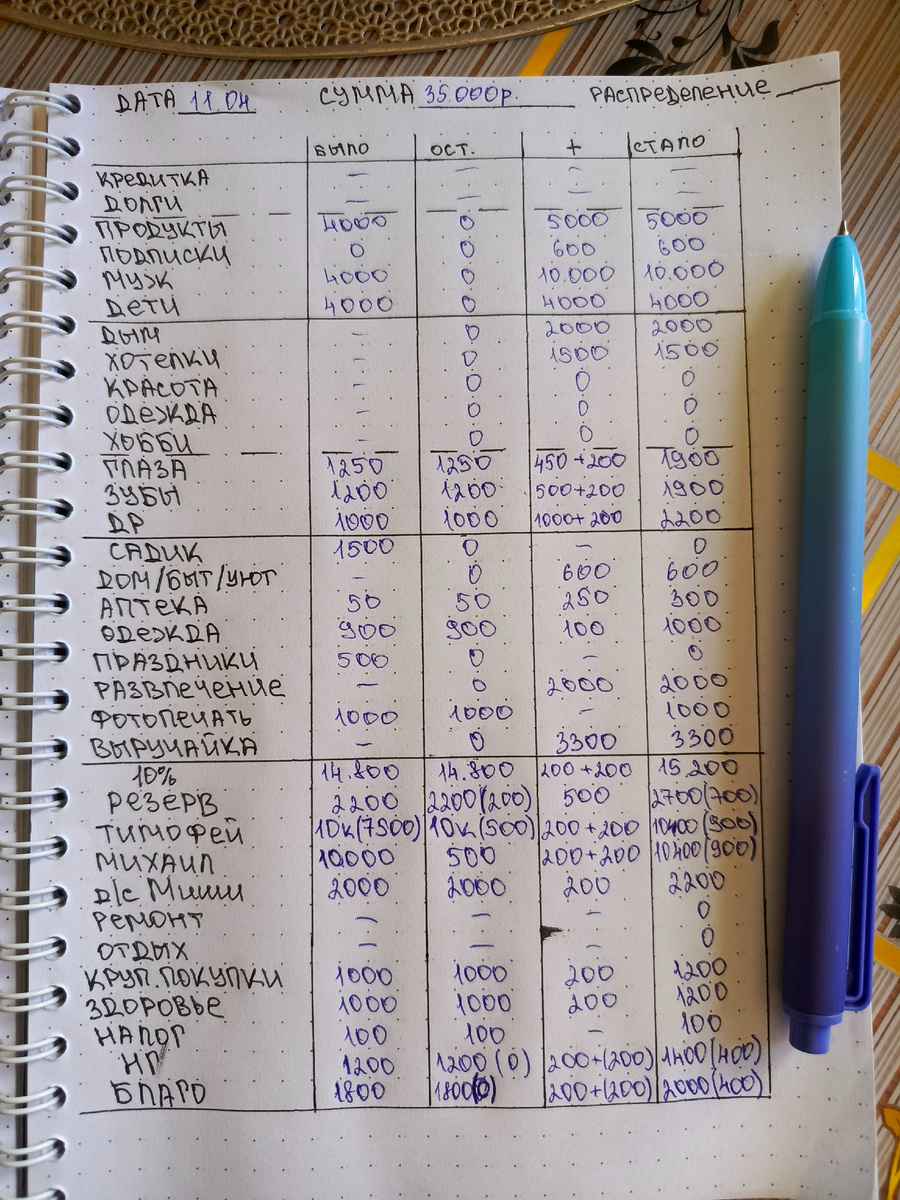 ДАТА 11.04 СУММА 35.000р. РАСПРЕДЕЛЕНИЕ
БЫЛО ОСТ. + СТАЛО
КРЕДИТКА – – – –
ДОЛГИ – – – –
ПРОДУКТЫ 4000 0 5000 5000
ПОДПИСКИ 0 0 600 600
МУЖ 4000 0 10.000 10.000
ДЕТИ 4000 0 4000 4000
ДЫМ – 0 2000 2000
ХОТЕЛКИ – 0 1500 1500
КРАСОТА – 0 0 0
ОДЕЖДА – 0 0 0
ХОББИ – 0 0 0
ГЛАЗА 1250 1250 450+200 1900
ЗУБЫ 1200 1200 500+200 1900
ДР 1000 1000 1000+200 2200
САДИК 1500 0 – 0
ДОМ/БЫТ/УЮТ – 0 600 600
АПТЕКА 50 50 250 300
ОДЕЖДА 900 900 100 1000
ПРАЗДНИКИ 500 0 – 0
РАЗВЛЕЧЕНИЕ – 0 2000 2000
ФОТОПЕЧАТЬ 1000 1000 – 1000
ВЫРУЧАЙКА – 0 3300 3300
10% 14.800 14.800 200+200 15.200
РЕЗЕРВ 2200 2200(200) 500 2700(700)
ТИМОФЕЙ 10к(7900) 10к(500) 200+200 10400(900)
МИХАИЛ 10.000 500 200+200 10400(900)
Д/С Миши 2000 2000 200 2200
РЕМОНТ – – – 0
ОТДЫХ – – – 0
КРУП.ПОКУПКИ 1000 1000 200 1200
ЗДОРОВЬЕ 1000 1000 200 1200
НАЛОГ 100 100 – 100
НГ 1200 1200(0) 200+(200) 1400(400)
БЛАГО 1800 1800(0) 200+(200) 2000(400)